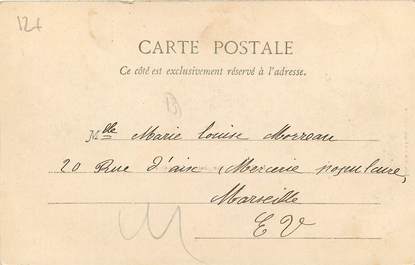 124
CARTE POSTALE
Ce côté est exclusivement réservé à l'adresse.
Mlle Marie Louise Morreau
20 Rue d'aix, Mercerie populaire,
Marseille
E V